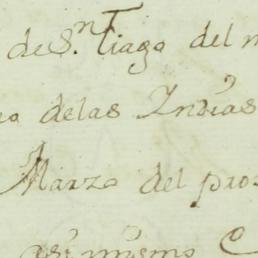 de S.n Tiago del
delas Indias
Marzo del
asi mismo